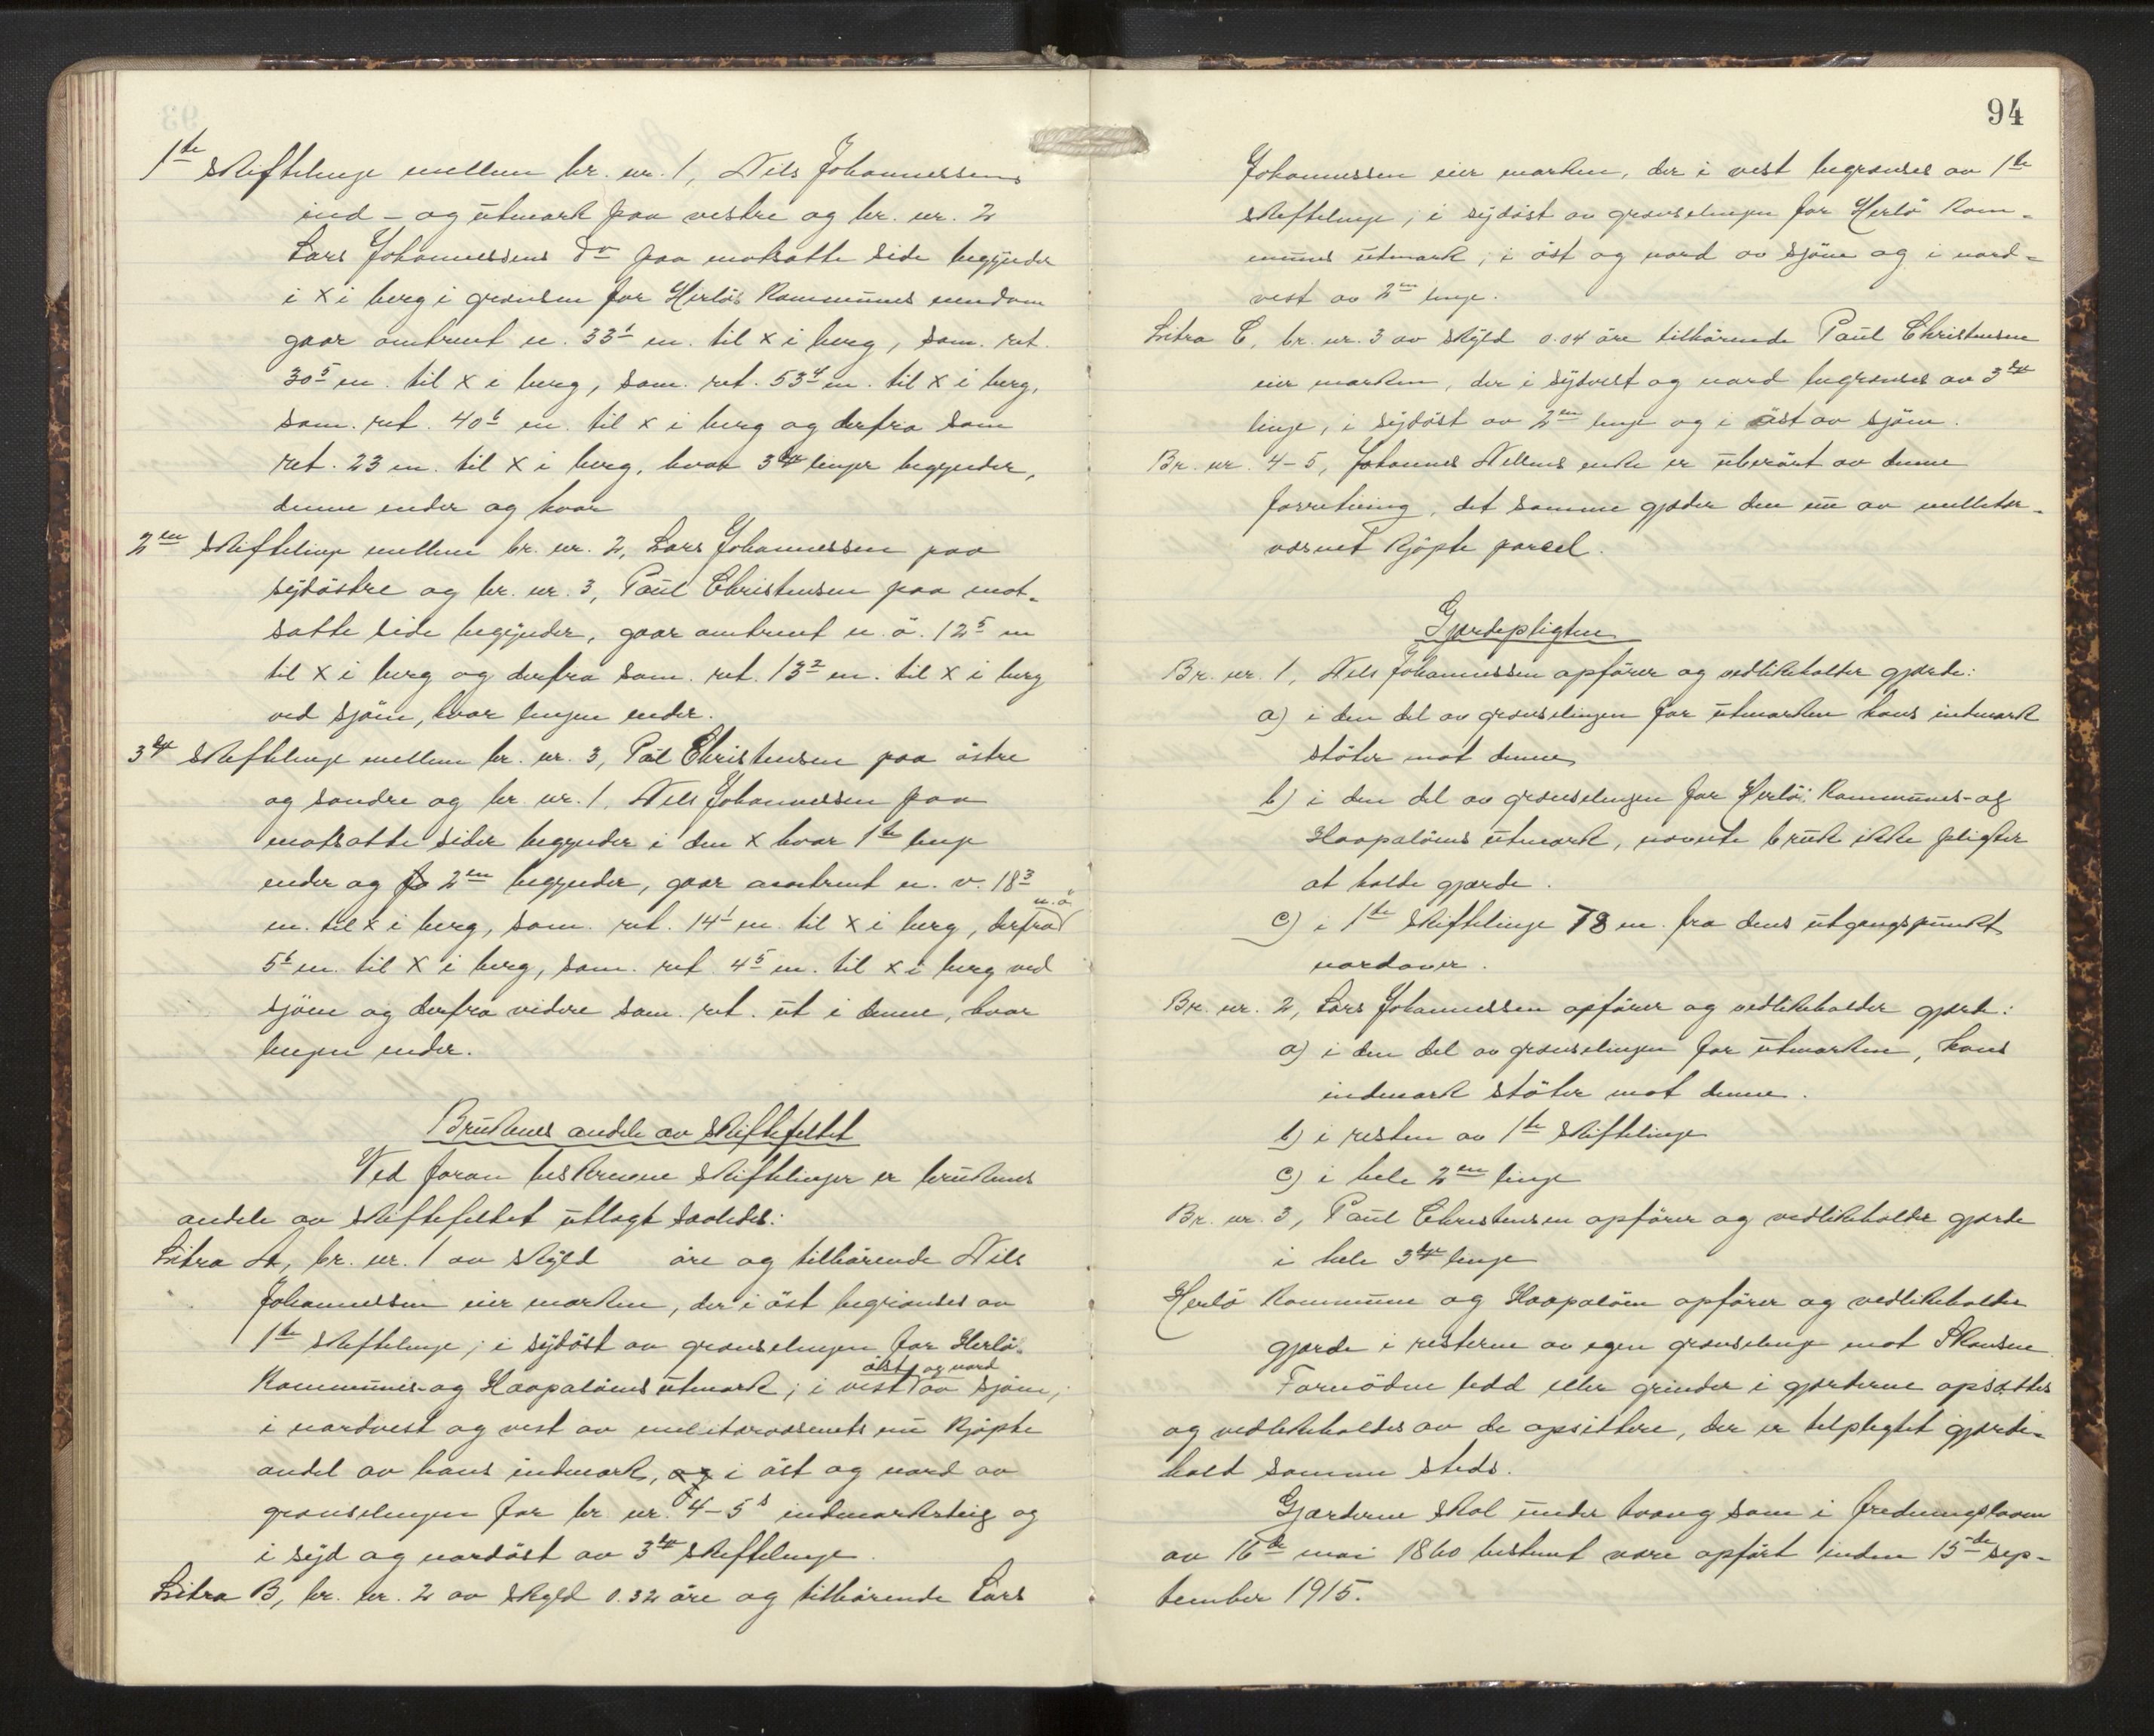 1ste skiftelinje mellem br. nr. 1, Nils Johannessens
ind- og utmark paa vestre og br. nr. 2
Lars Johannessens do paa motsatte side begynder
i x i berg i grænsen for Herlö Kommunes eiendom
gaar omtrent n. 33¹ m. til x i berg, sam. ret.
30⁵ m. til x i berg, sam. ret. 53⁴ m. til x i berg,
sam. ret. 40⁶ m. til x i berg og derfra sam
ret. 23 m. til x i berg, hvor 3dje linje begynder,
denne ender og hvor
2en skiftelinje mellem br. nr. 2, Lars Johannessen paa
sydöstre og br. nr. 3, Paul Christensen paa mot-
satte side begynder, gaar omtrent n. ö. 12⁵ m
til x i berg og derfra sam. ret. 13² m. til x i berg
ved sjöen, hvor linjen ender.
3dje skiftelinje mellem br. nr. 3, Pål Christensen paa östre
og söndre og br. nr. 1, Nils Johannessen paa
motsatte sider begynder i den x hvor 1ste linje
ender og 2en begynder, gaar omtrent n. v. 18³
m. til x i berg, sam. ret. 14¹ m. til x i berg, derfra n. ö.
5⁶ m. til x i berg, sam. ret. 4⁵ m. til x i berg ved
sjöen og derfra videre sam. ret. ut i denne, hvor
linjen ender.
Brukenes andele av skiftefeltet
Ved foran beskrevne skiftelinjer er brukenes
andele av skiftefeltet utlagt saaledes:
Litra A, br. nr. 1 av skyld öre og tilhörende Nils
Johannessen eier marken, der i öst begrænses av
1ste skiftelinje; i sydöst av grænselinjen for Herlö
Kommunes- og Haapalöens utmark; i vest öst og nord av sjöen,
i nordvest og vest av militærvæsenets nu kjöpte
andel av hans indmark, og i öst og nord av
grænselinjen for br. nr. 4-5s indmarksteig og
i syd og nordöst av 3dje skiftelinje.
Litra B, br. nr. 2 av skyld 0.32 öre og tilhörende Lars
94
Johannessen eier marken, der i vest begrænses av 1ste
skiftelinje; i sydöst av grænselinjen for Herlö Kom-
munes utmark; i öst og nord av sjöen og i nord-
vest av 2en linje.
Litra C, br. nr. 3 av skyld 0.04 öre tilhörende Paul Christensen
eier marken, der i sydvest og nord begrænses av 3dje
linje, i sydöst av 2en linje og i öst av sjöen.
Br. nr. 4-5, Johannes Nilsens enke er uberört av denne
forretning, det samme gjælder den nu av militær-
væsnet kjöpte parcel.
Gjærdepligten
Br. nr. 1, Nils Johannessen opförer og vedlikeholder gjærde:
a) i den del av grænselinjen for utmarken hans indmark
stöter mot denne
b) i den del av grænselinjen for Herlö Kommunes- og
Haapalöens utmark, nævnte bruk ikke pligter
at holde gjærde.
c) i 1ste skiftelinje 78 m. fra dens utgangspunkt
nordover.
Br. nr. 2, Lars Johannessen opförer og vedlikeholder gjærde:
a) i den del av grænselinjen for utmarken, hans
indmark stöter mot denne.
b) i resten av 1ste skiftelinje
c) i hele 2en linje
Br. nr. 3, Paul Christensen opförer og vedlikeholder gjærde
i hele 3dje linje
Herlö Kommune og Haapalöen opförer og vedlikeholder
gjærde i resterne av egen grænselinje mot Skansen
Fornödne ledd eller grinder i gjærderne opsættes
og vedlikeholdes av de opsittere, der er tilpligtet gjærde-
hold samme steds.
Gjærderne skal under tvang som i fredningsloven
av 16de mai 1860 bestemt være opfört inden 15de sep-
tember 1915.